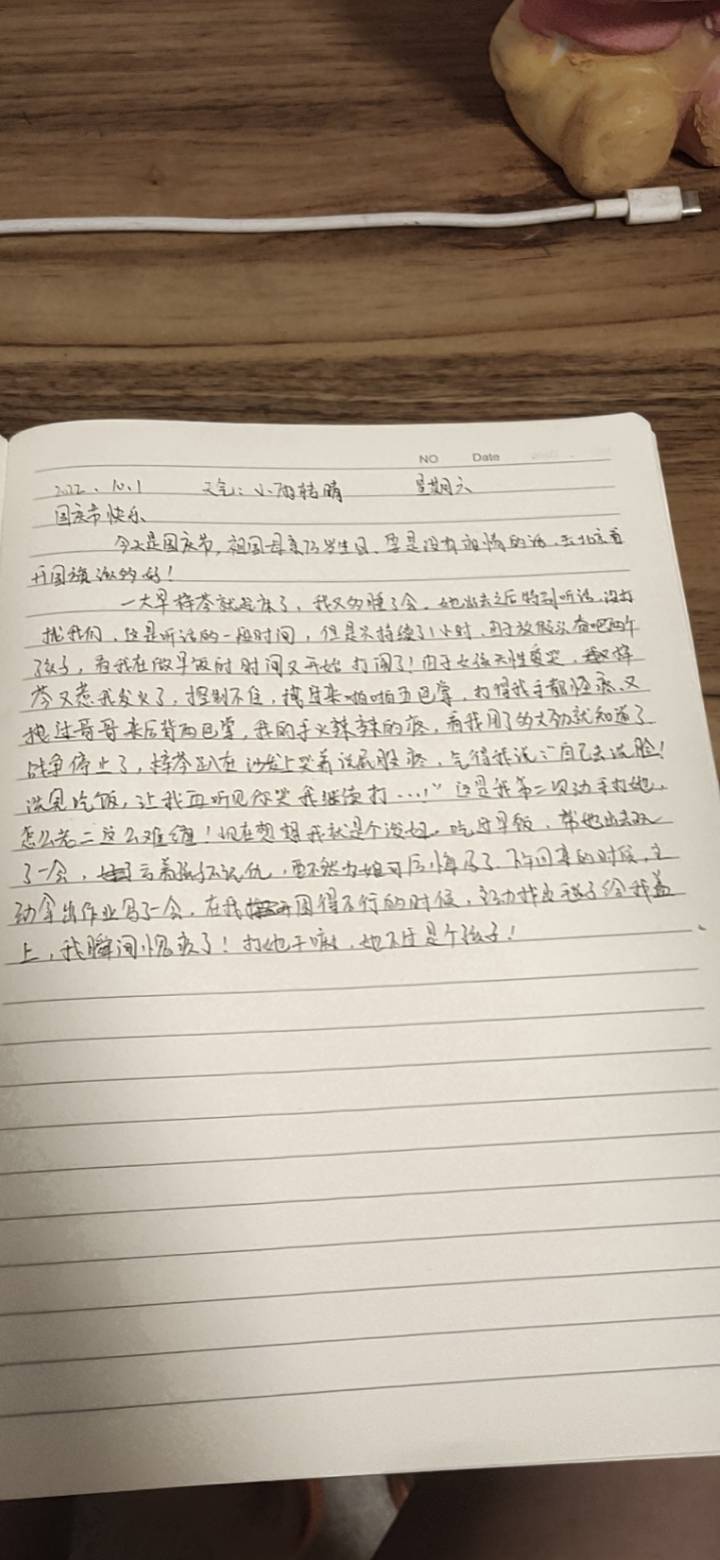 NO Date
2022.10.1 天气:小雨转晴 星期六
国庆节快乐
今天是国庆节,祖国母亲73岁生日,要是没有疫情的话,去北京看
升国旗该多好!
一大早梓苓就起床了,我又多睡了会,她出去之后特别听话,没打
扰我们,这是听话的一段时间,但是只持续了1小时,由于放假兴奋吧两个
孩子,看我在做早饭的时间又开始打闹了!由于女孩天性爱哭,梓
苓又惹我发火了,控制不住,拽过来啪啪五巴掌,打得我手都怪疼,又
拽过哥哥来后背两巴掌,我的手火辣辣的疼,看我用了多大劲就知道了
战争停止了,梓苓趴在沙发上哭着说屁股疼,气得我说:"自己去洗脸!
洗完吃饭,让我再听见你哭我继续打…!"这是我第二次动手打她,
怎么老二这么难缠!现在想想我就是个泼妇。吃过早饭,带她出去玩
了一会,亏着孩子不记仇,要不然为娘可后悔死了。下午回来的时候,主
动拿出作业写了一会,在我困得不行的时候,主动找出毯子给我盖
上,我瞬间愧疚了!打她干嘛,她不过是个孩子!